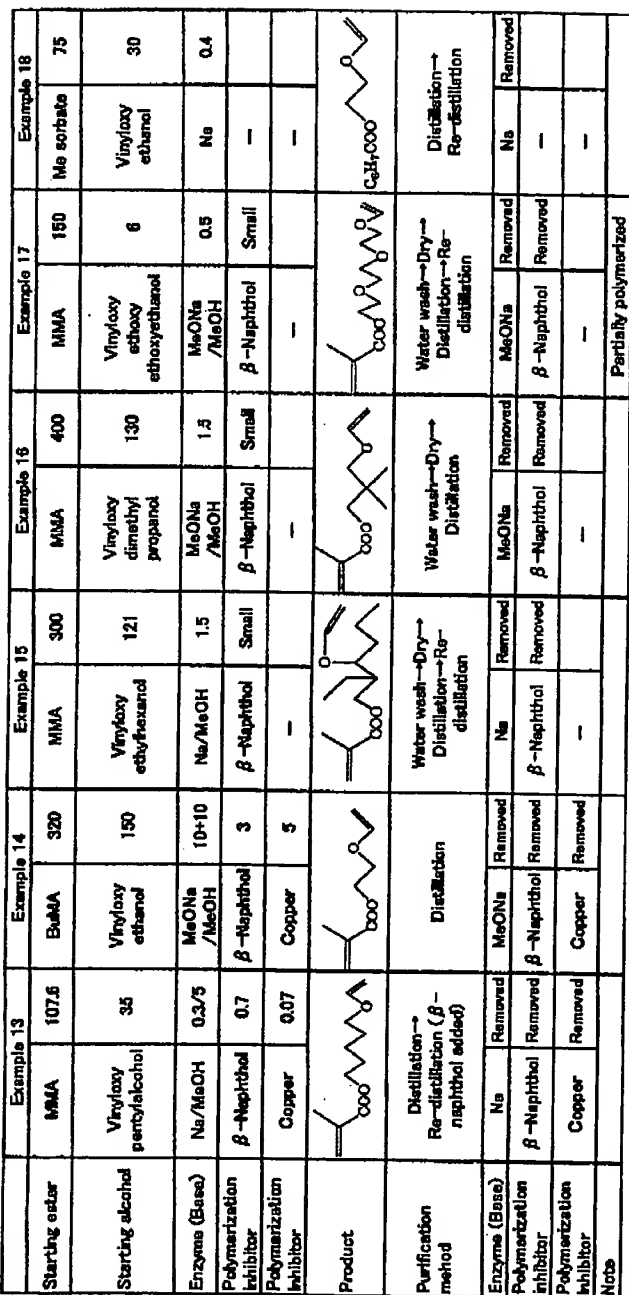 Example 13 Example 14 Example 15 Example 16 Example 17 Example 18
Starting ester MMA 107.6 BuMA 320 MMA 300 MMA 400 MMA 150 Me sorbate 75
Starting alcohol Vinyloxy pentylalcohol 35 Vinyloxy ethanol 150 Vinyloxy ethylhexanol 121 Vinyloxy dimethyl propanol 130 Vinyloxy ethoxy ethoxyethanol 6 Vinyloxy ethanol 30
Enzyme (Base) Na/MeOH 0.3/5 MeONa /MeOH 10+10 Na/MeOH 1.5 MeONa /MeOH 1.5 MeONa /MeOH 0.5 Na 0.4
Polymerization inhibitor β-Naphthol 0.7 β-Naphthol 3 β-Naphthol Small β-Naphthol Small β-Naphthol Small —
Polymerization inhibitor Copper 0.07 Copper 5 — — — —
Product COO O COO O COO O COO O COO O O O C₅H₇COO O
Purification mehod Distillation→ Re-distillation (β-naphthol added) Distillation Water wash→Dry→ Distillation→Re-distillation Water wash→Dry→ Distillation Water wash→Dry→ Distillation→Re-distillation Distillation→ Re-distillation
Enzyme (Base) Na Removed MeONa Removed Na Removed MeONa Removed MeONa Removed Na Removed
Polymerization inhibitor β-Naphthol Removed β-Naphthol Removed β-Naphthol Removed β-Naphthol Removed β-Naphthol Removed —
Polymerization inhibitor Copper Removed Copper Removed — — — —
Note Partially polymerized